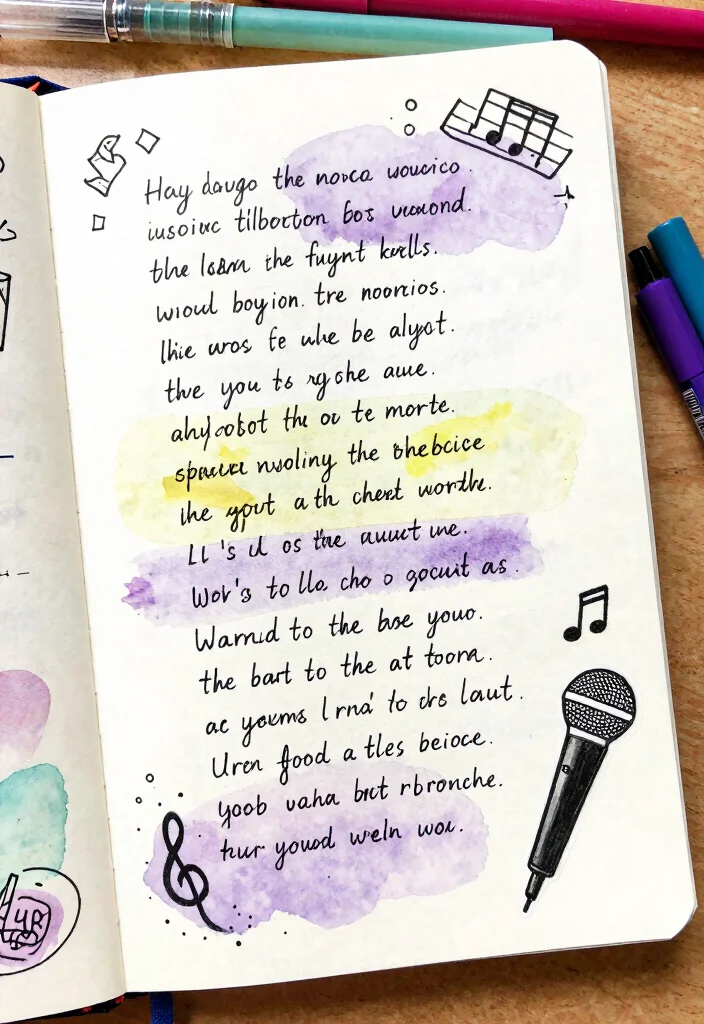 Hay daugo the norca woucico.
iusoiuc tilbotton bos vecuond.
the lsam the fuynt kells.
wioul boyion. tre noorios.
lhie wros fe uhe be alyot.
the you ts rgche aue.
ahycobot thu oc te morte.
nuoliny the bhebcice
ihe gput a th chest worthe.
Ll 's il os the auuct ine.
Wov's to lla cho o gocuit as.
Warnid to the bse youo.
the bart to the at toorn.
ac yeems lrna' to drs laut.
Uren food a tles beioce.
yoob uaha bict rbronche.
tuur yousd weln wou.